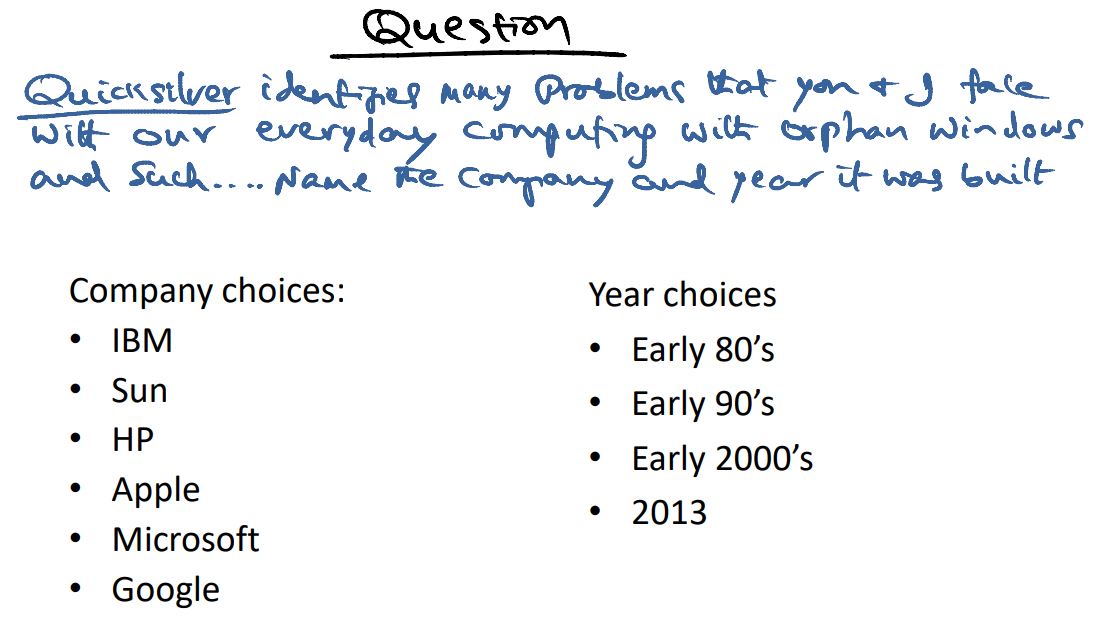 Question
Quicksilver identifies many problems that you & I face
with our everyday computing with orphan windows
and such.... Name the company and year it was built
Company choices:
• IBM
• Sun
• HP
• Apple
• Microsoft
• Google
Year choices
• Early 80’s
• Early 90’s
• Early 2000’s
• 2013